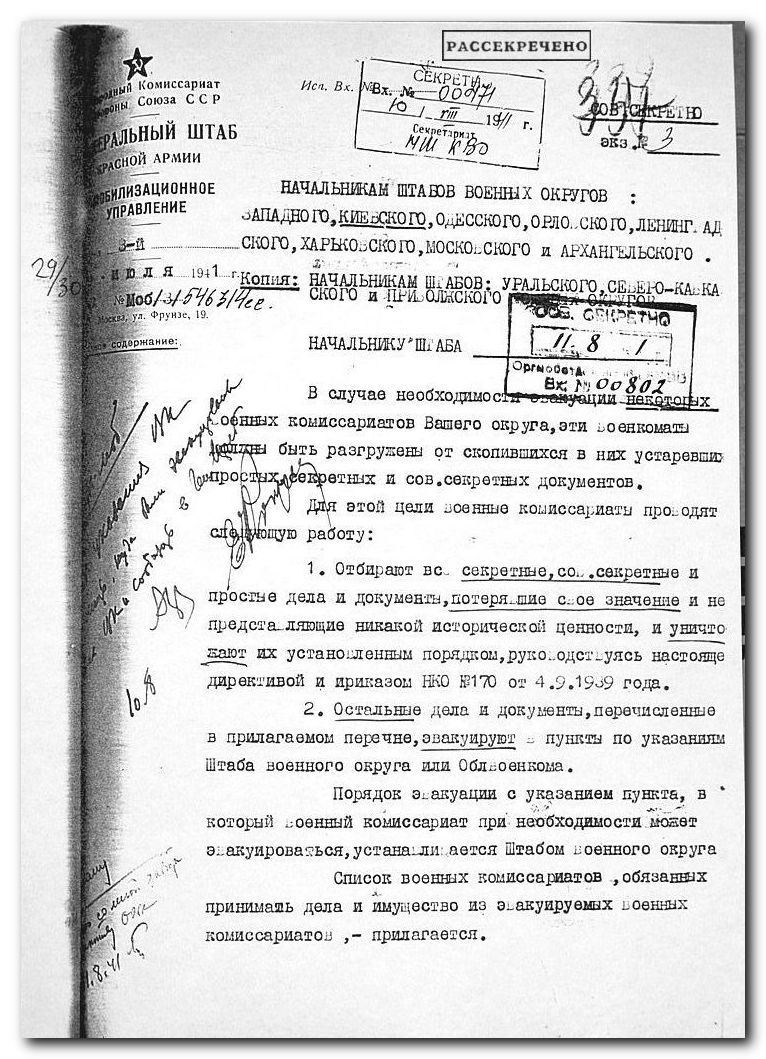 РАССЕКРЕЧЕНО
Комиссариат
Союза ССР
ШТАБ
АРМИИ
УПРАВЛЕНИЕ
3-й
29/30
июля 1941 г.
№ Моб/
Москва, ул. Фрунзе, 19.
содержание:
Исп. Вх. №
СЕКРЕТН
Вх. № 00971
10 / VIII 1941 г.
Секретариат
МШ КВО
СОВ СЕКРЕТНО
экз.№ 3
НАЧАЛЬНИКАМ ШТАБОВ ВОЕННЫХ ОКРУГОВ :
ЗАПАДНОГО, КИЕВСКОГО, ОДЕССКОГО, ОРЛОВСКОГО, ЛЕНИНГРАД
СКОГО, ХАРЬКОВСКОГО, МОСКОВСКОГО и АРХАНГЕЛЬСКОГО .
Копия: НАЧАЛЬНИКАМ ШТАБОВ: УРАЛЬСКОГО, СЕВЕРО-КАВКА
СКОГО и ПРИВОЛЖСКОГО ОКРУГОВ
НАЧАЛЬНИКУ ШТАБА
СОВ. СЕКРЕТНО
11. 8 1
Вх. № 00802
В случае необходимости эвакуации некоторых
военных комиссариатов Вашего округа,эти военкоматы
должны быть разгружены от скопившихся в них устаревших
простых,секретных и сов.секретных документов.
Для этой цели военные комиссариаты проводят
следующую работу:
1. Отбирают все секретные,сов.секретные и
простые дела и документы,потерявшие свое значение и не
представляющие никакой исторической ценности, и уничто
жают их установленным порядком,руководствуясь настояще
директивой и ириказом НКО №170 от 4.9.1939 года.
2. Остальные дела и документы,перечисленные
в прилагаемом перечне,эвакуируют в пункты по указаниям
Штаба военного округа или Облвоенкома.
Порядок эвакуации с указанием пункта, в
который военный комиссариат при необходимости может
эвакуироваться,устанавливается Штабом военного округа
Список военных комиссариатов ,обязанных
принимать дела и имущество из эвакуируемых военных
комиссариатов ,- прилагается.
10.8
1.8.41